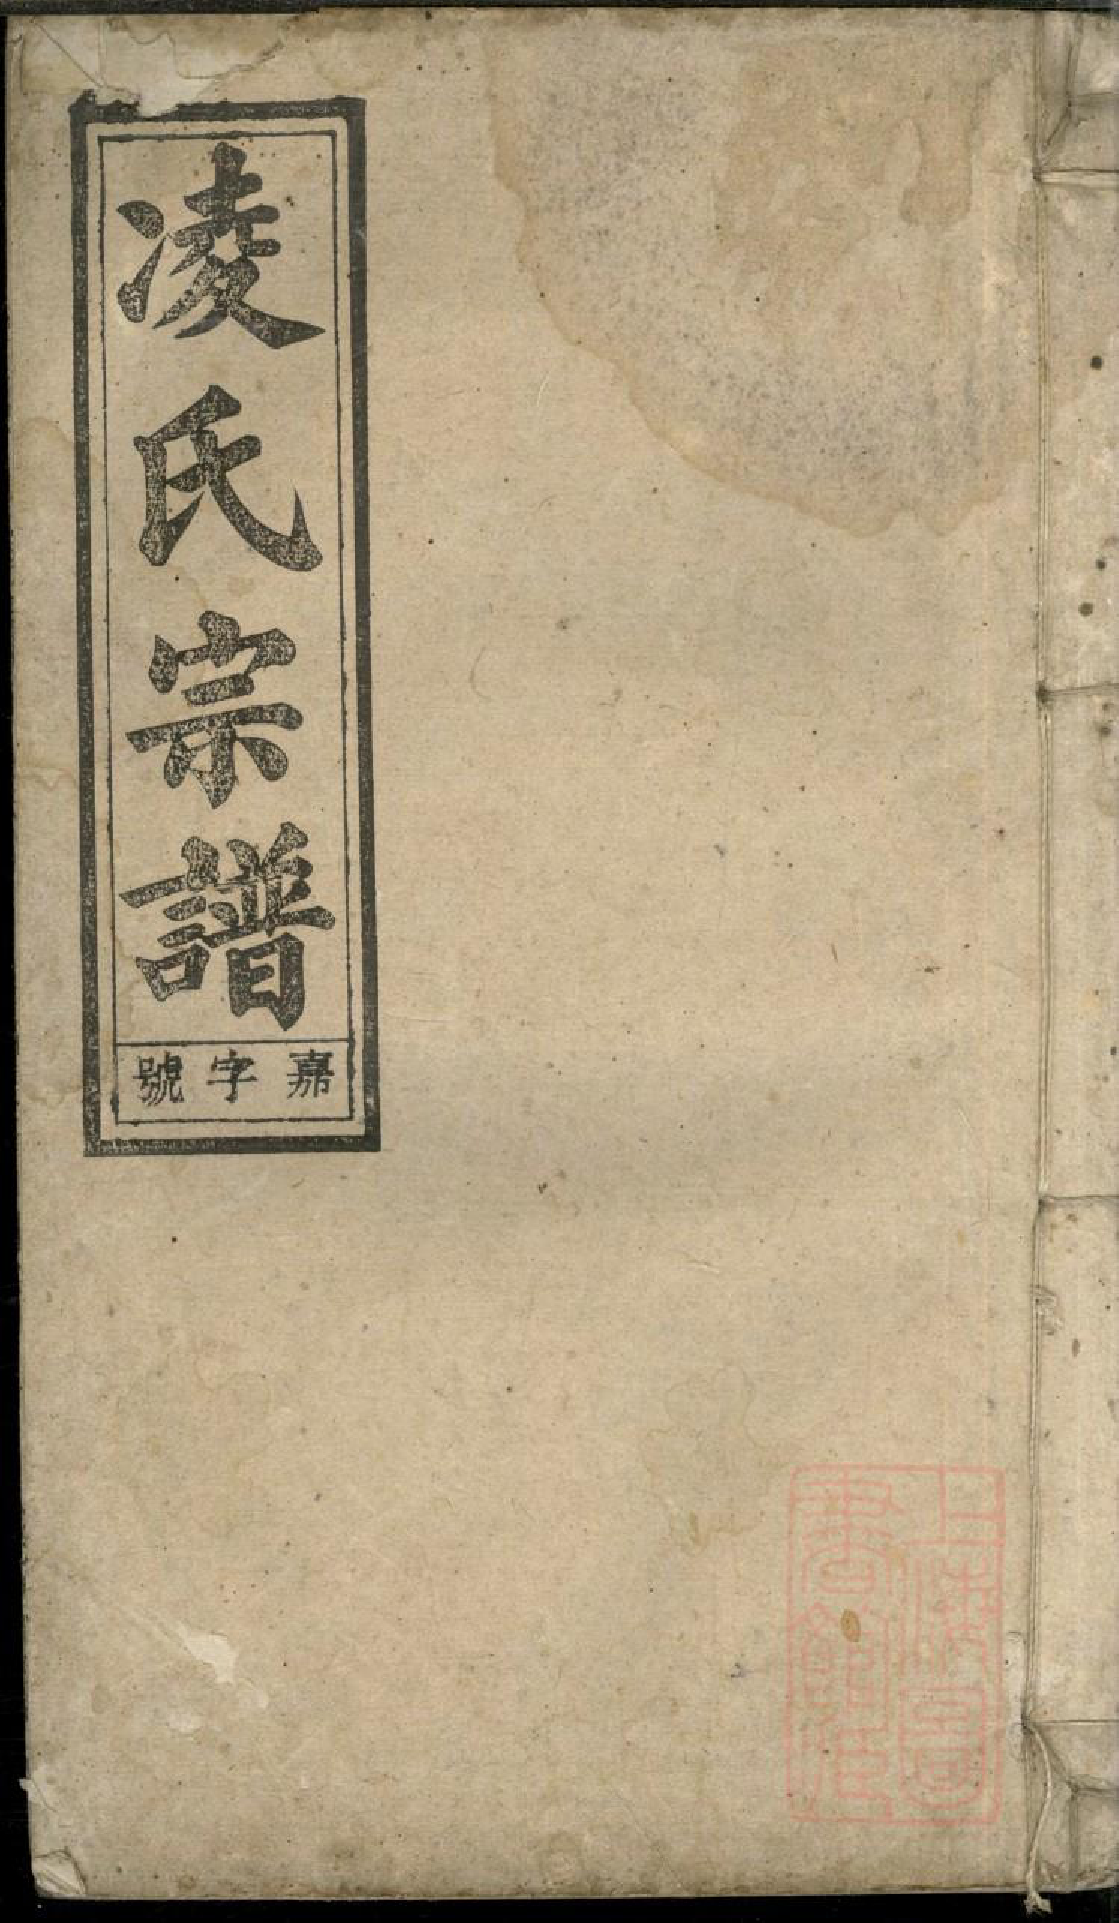 凌氏宗譜
嘉字號
上海圖
書館藏